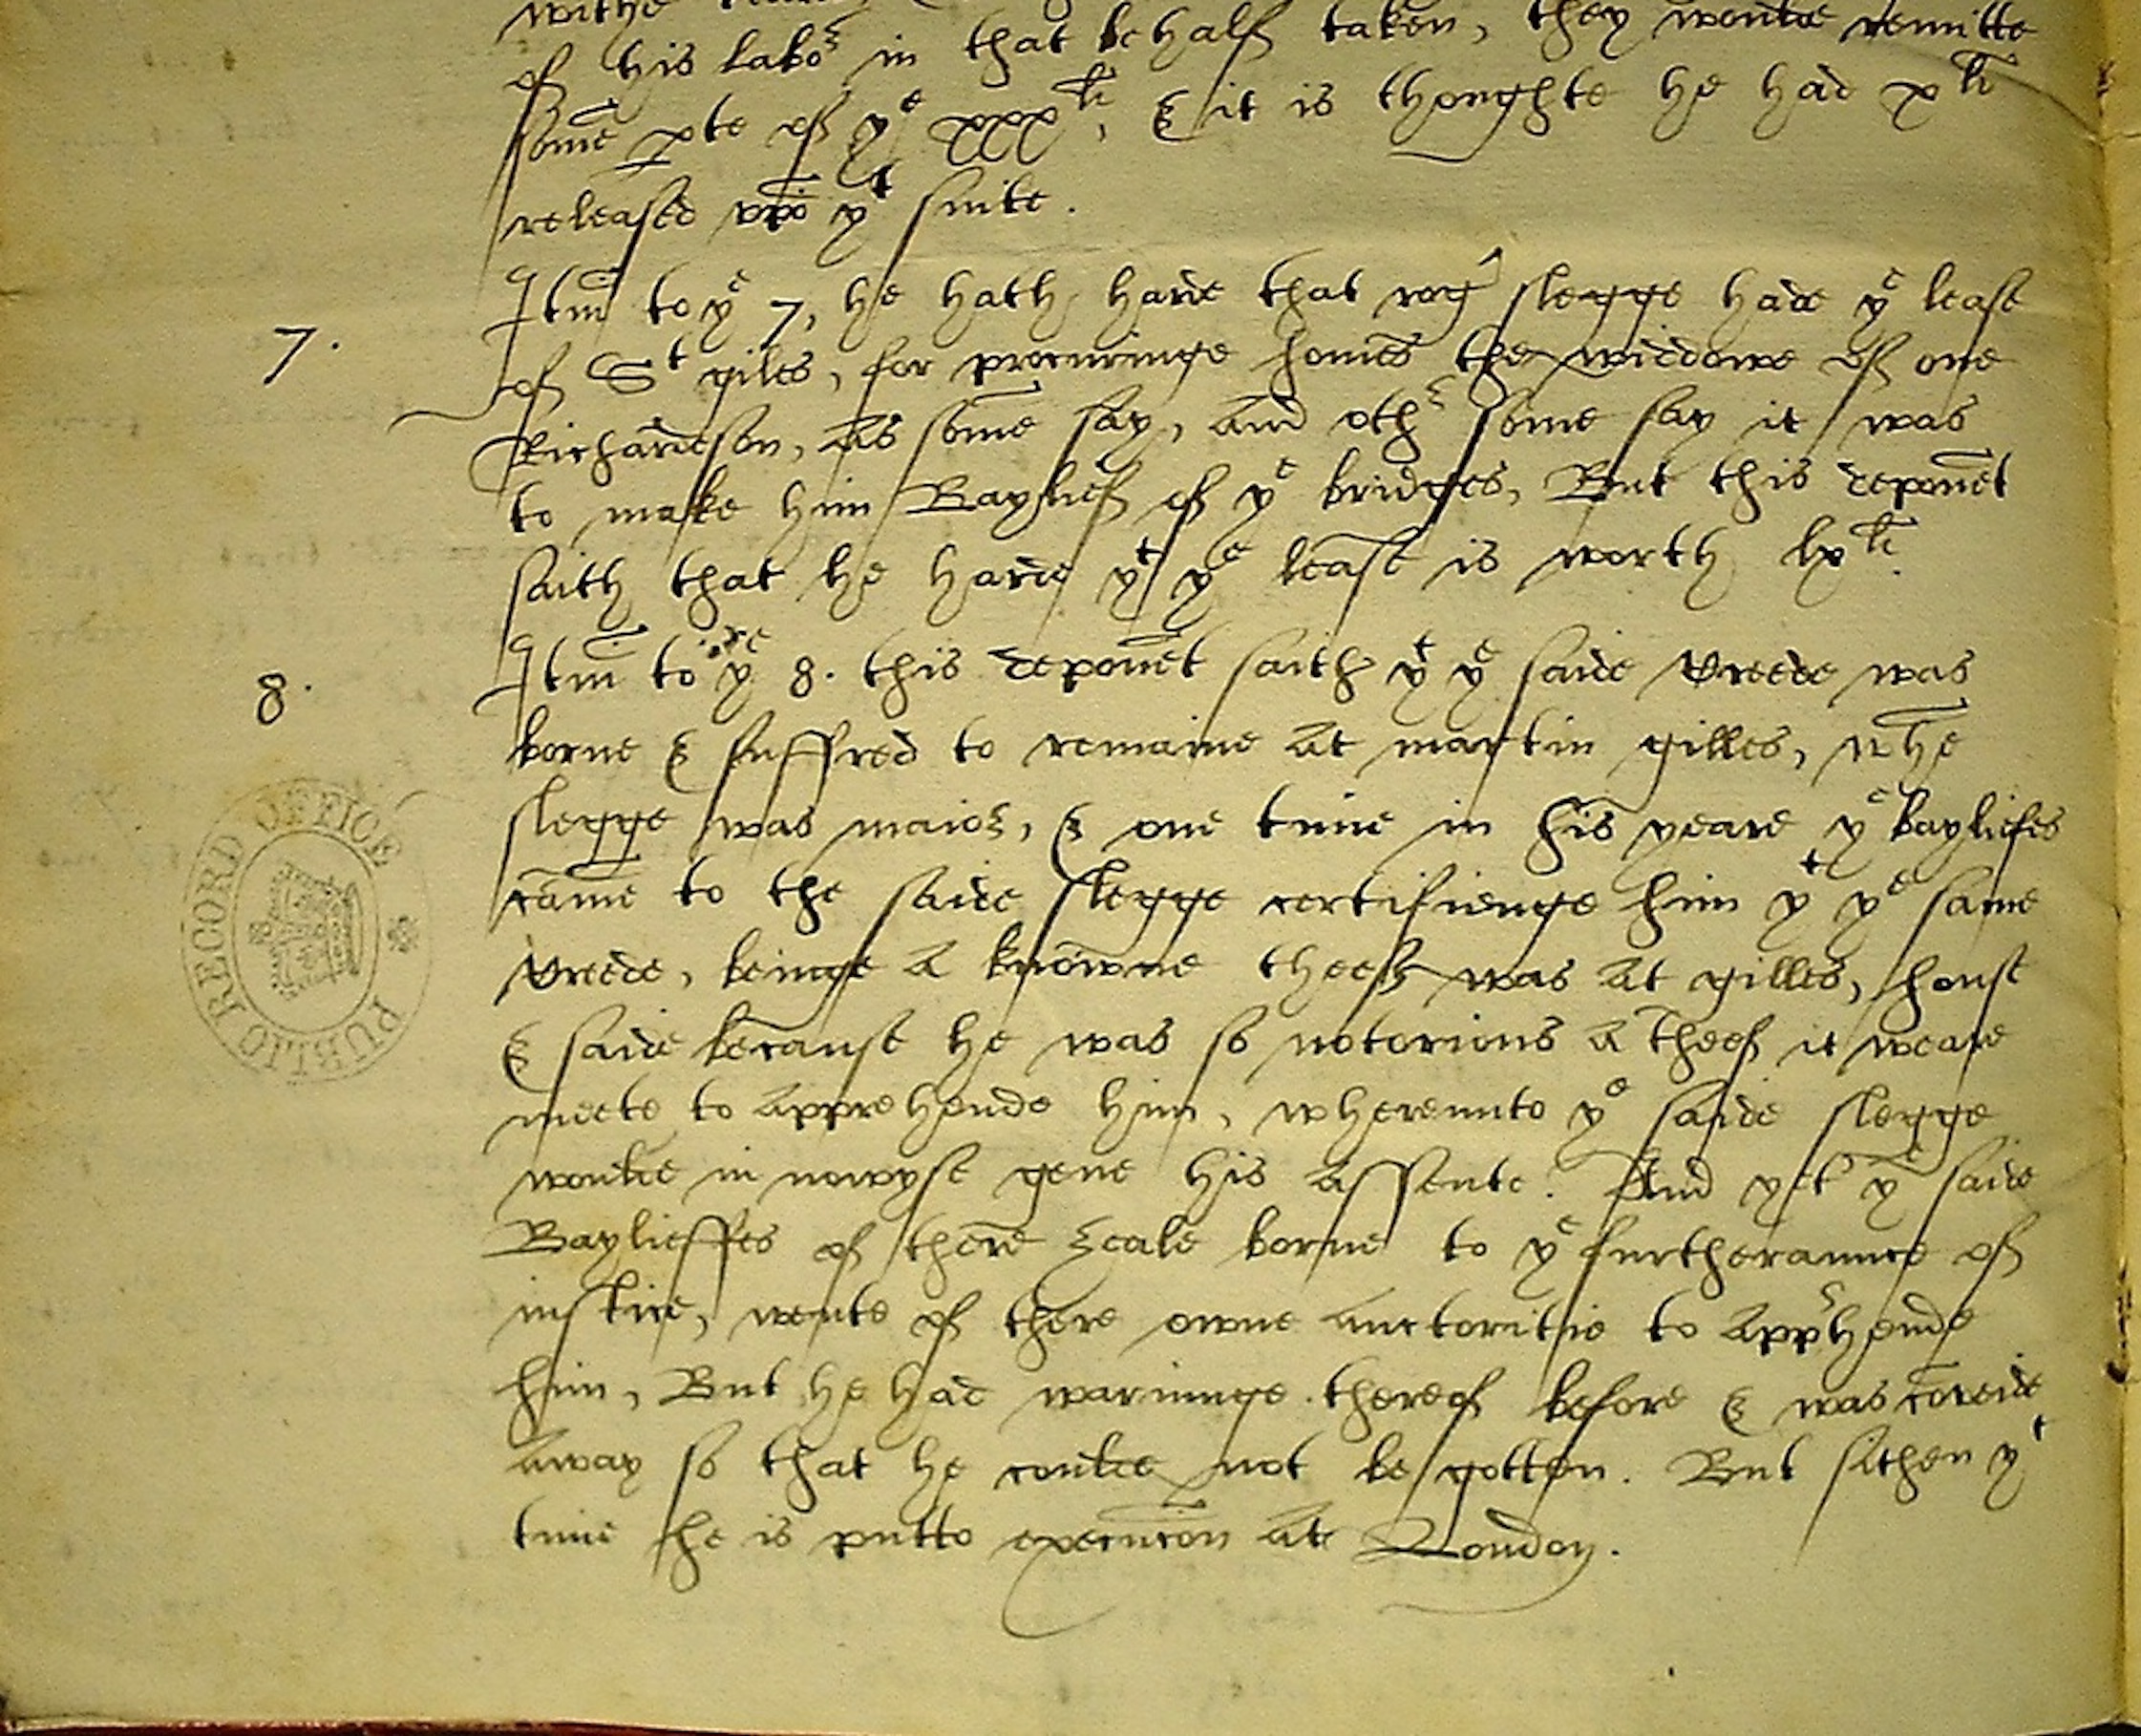 withe
of his labor in that behalf taken, they woulde remitte
some pte of ye xxx li, & it is thoughte he had x li
released vpo yt suite.
7. Itm to ye 7, he hath harde that rog slegge hade ye lease
of St giles, for procuringe homes the widdowe of one
Richardson, as some say, and oth some say it was
to make him Baylief of ye bridges, But this deponet
saith that he harde yt ye lease is worth lx li.
8. Itm to ye 8. this deponet saith yt ye saide Breede was
borne & suffred to remaine at martin gilles, whe
slegge was maior, & one time in his yeare ye bayliefes
came to the saide slegge certifienge him yt ye same
Breede, beinge a knowne theef was at gilles, house
& saide because he was so notorious a theef it weare
meete to apprehende him, whereunto ye saide slegge
woulde in nowyse geue his assente. And yet ye saide
Baylieffes of there zeale borne to ye furtheraunce of
iustice, wente of there owne auctoritie to apphende
him, But he had warninge thereof before & was coueide
away so that he coulde not be gotten. But sithen yt
time he is putto execucon at London.
PUBLIC RECORD OFFICE